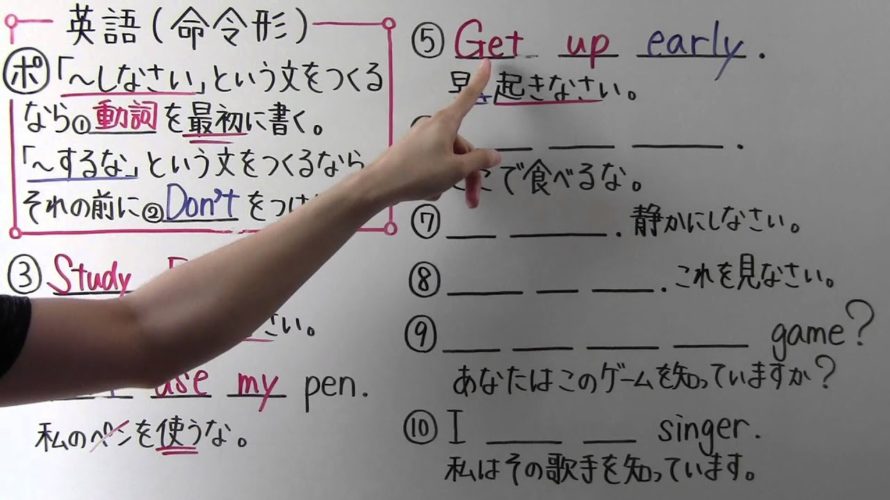 英語(命令形)
ポ「〜しなさい」という文をつくる
なら①動詞を最初に書く。
「〜するな」という文をつくるなら
それの前に②Don'tをつけ
③ Study
さい。
use my pen.
私のペンを使うな。
⑤ Get up early.
早く起きなさい。
___ ___ ___.
こで食べるな。
⑦ ___ ___. 静かにしなさい。
⑧ ___ ___ ___. これを見なさい。
⑨ ___ ___ ___ ___ game?
あなたはこのゲームを知っていますか?
⑩ I ___ ___ singer.
私はその歌手を知っています。